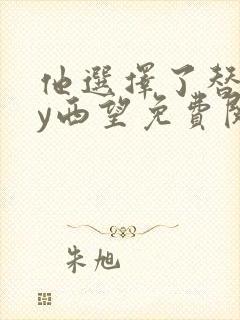 他選擇了替
y西望免費閱
朱旭